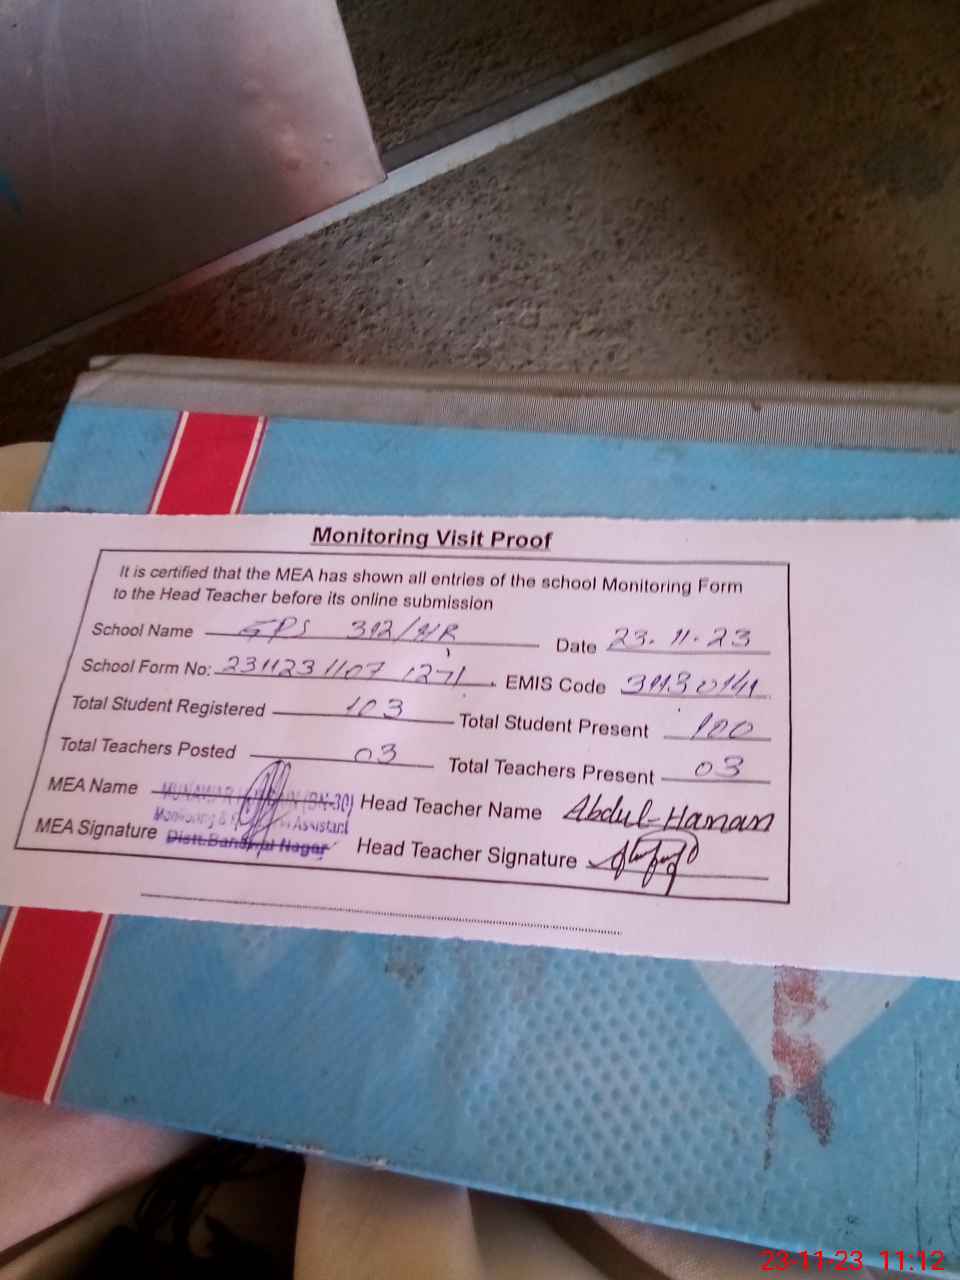 Monitoring Visit Proof
It is certified that the MEA has shown all entries of the school Monitoring Form
to the Head Teacher before its online submission
School Name GPS 312/HR Date 23.11.23
School Form No: 231123 1107 1271 EMIS Code
Total Student Registered 103 Total Student Present 100
Total Teachers Posted 03 Total Teachers Present 03
MEA Name (BN-30) Head Teacher Name Abdul-Hanan
Monitoring & Assistant
MEA Signature Distt. Nagar Head Teacher Signature
23-11-23 11:12